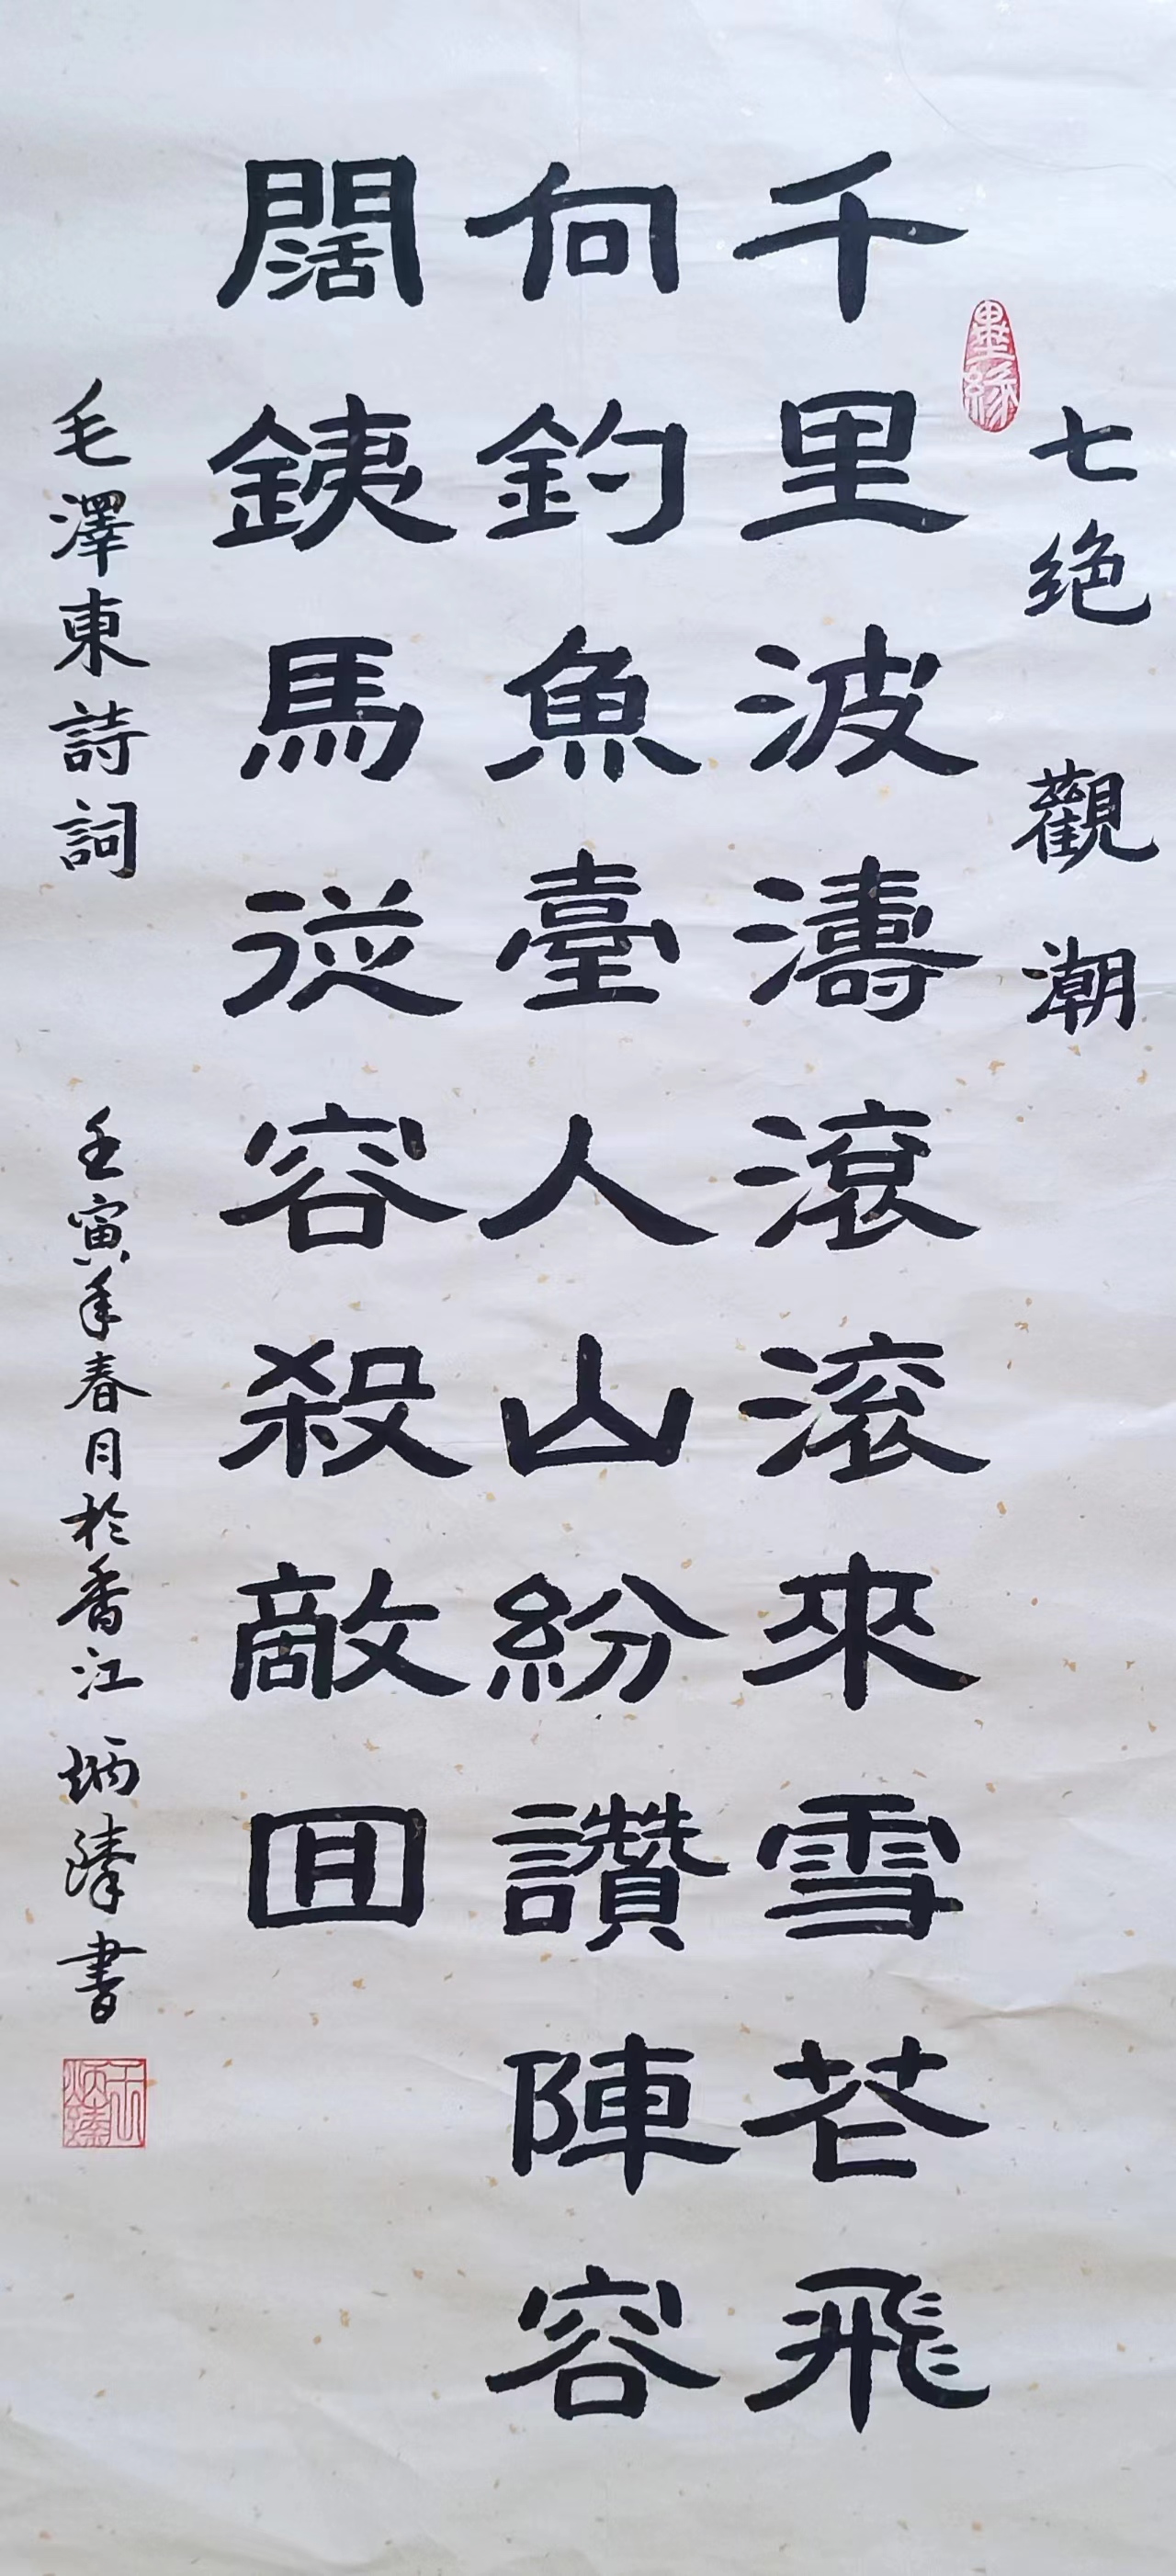 七绝 觀潮
千里波濤滾滚來雪花飛
向釣魚臺人山紛讚陣容
闊鉄馬從容殺敵回
毛澤東詩詞 壬寅年春月於香江 炳臻書
墨緣